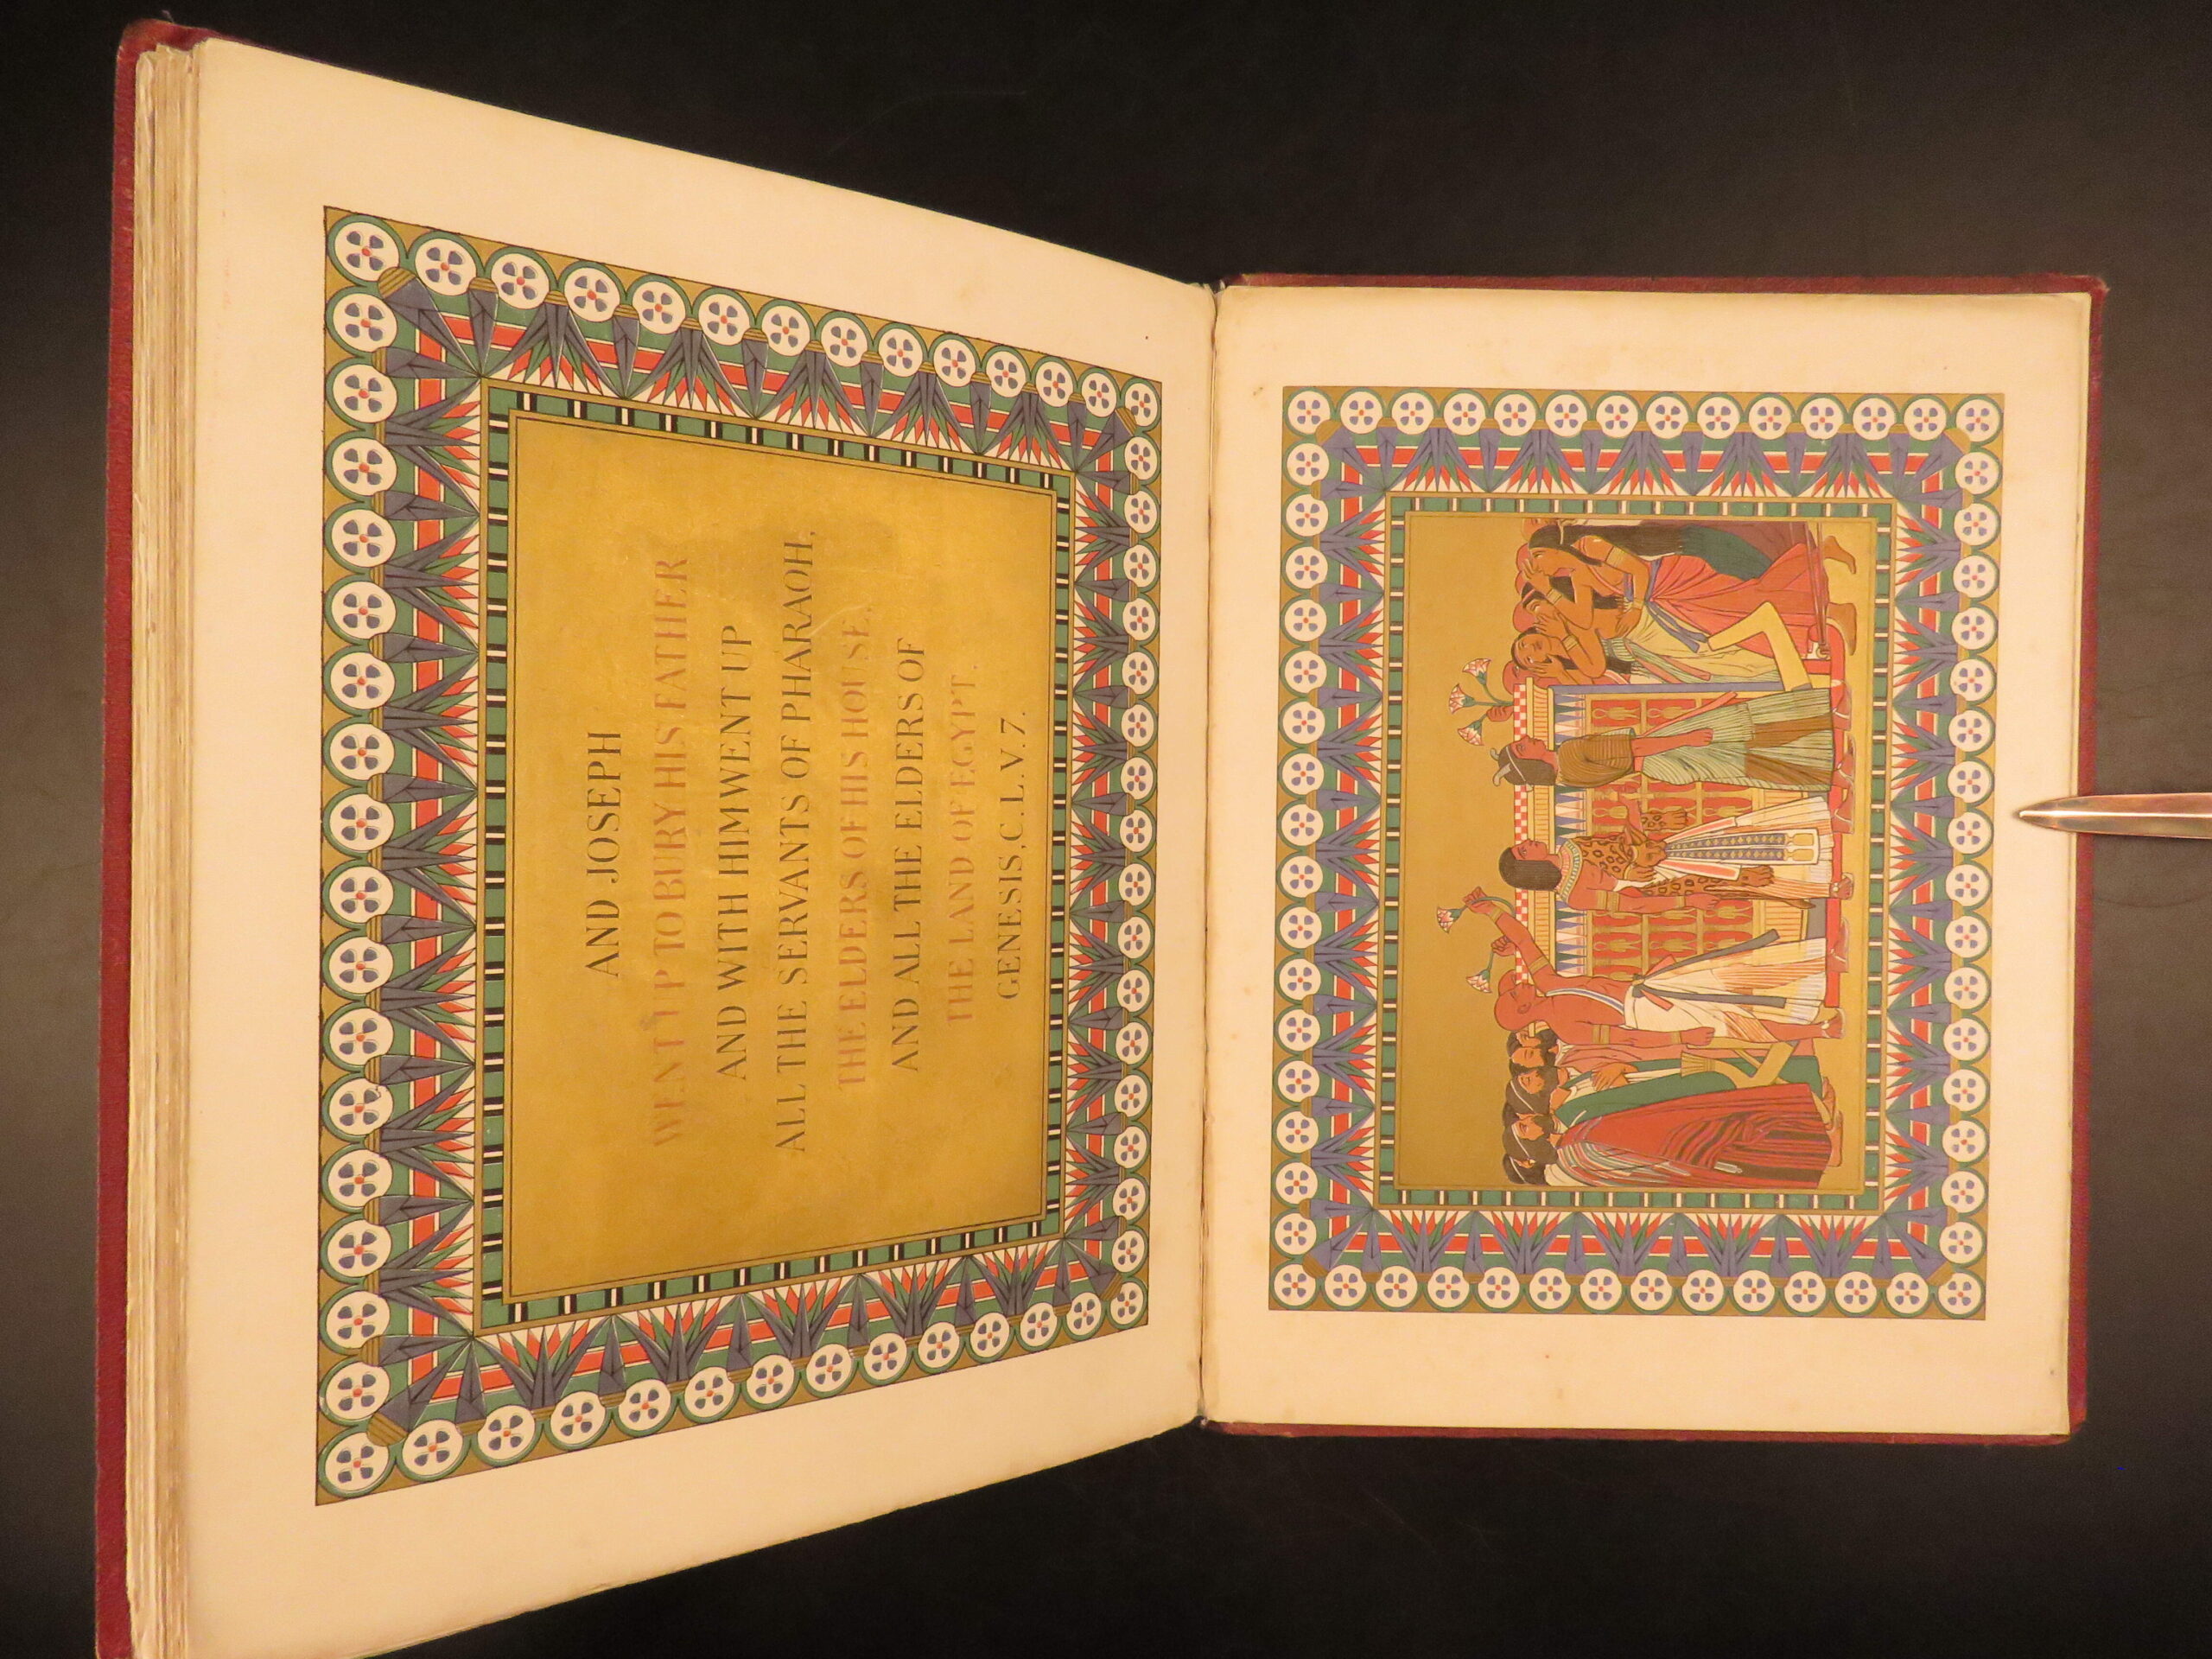 AND JOSEPH
WENT UP TO BURY HIS FATHER
AND WITH HIM WENT UP
ALL THE SERVANTS OF PHARAOH,
THE ELDERS OF HIS HOUSE,
AND ALL THE ELDERS OF
THE LAND OF EGYPT.
GENESIS, C. L. V. 7.